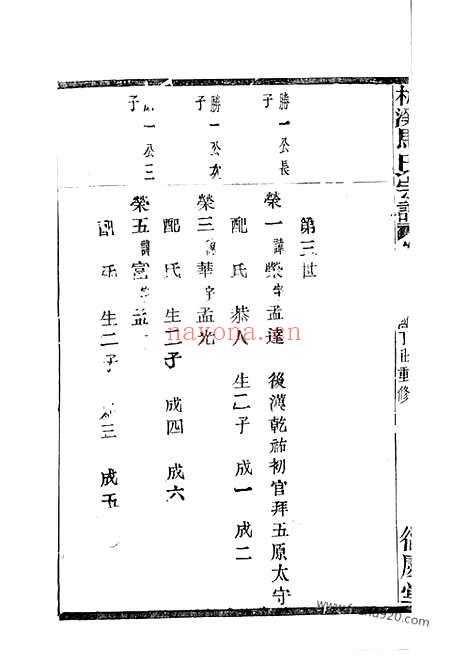 第三世
勝一公長子
榮一 諱榮字孟達 後漢乾祐初官拜五原太守
配 氏 恭人 生二子 成一 成二
勝一公次子
榮三 諱華字孟光
配 氏 生二子 成四 成六
一公三子
榮五 諱富字孟
配 氏 生二子 三 成五
溪馬氏宗譜
丁 重修
堂
nayona.cn